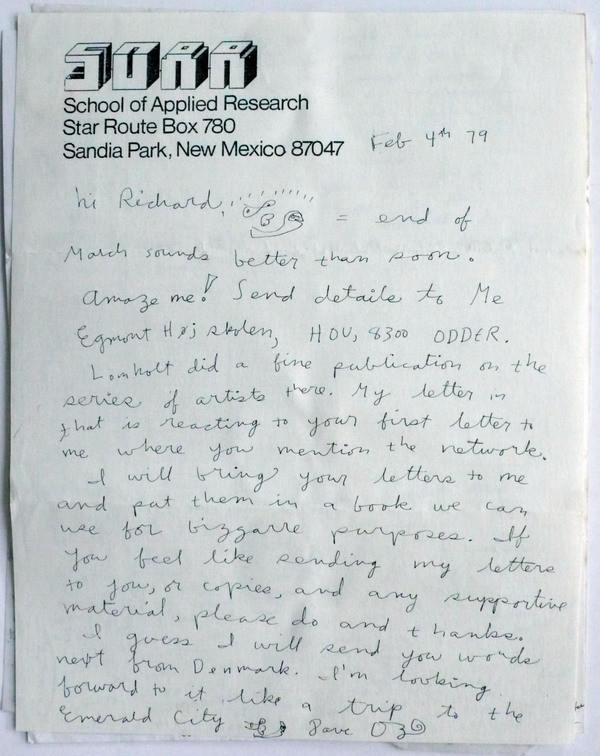 SOAR
School of Applied Research
Star Route Box 780
Sandia Park, New Mexico 87047
Feb 4th 79
hi Richard, = end of
March sounds better than soon.
Amaze me! Send details to Me
Egmont Højskolen, HOU, 8300 ODDER.
Lomholt did a fine publication on the
series of artists there. My letter in
that is reacting to your first letter to
me where you mention the network.
I will bring your letters to me
and put them in a book we can
use for bizgarre purposes. If
you feel like sending my letters
to you, or copies, and any supportive
material, please do and thanks.
I guess I will send you words
next from Denmark. I'm looking
forward to it like a trip to the
Emerald City